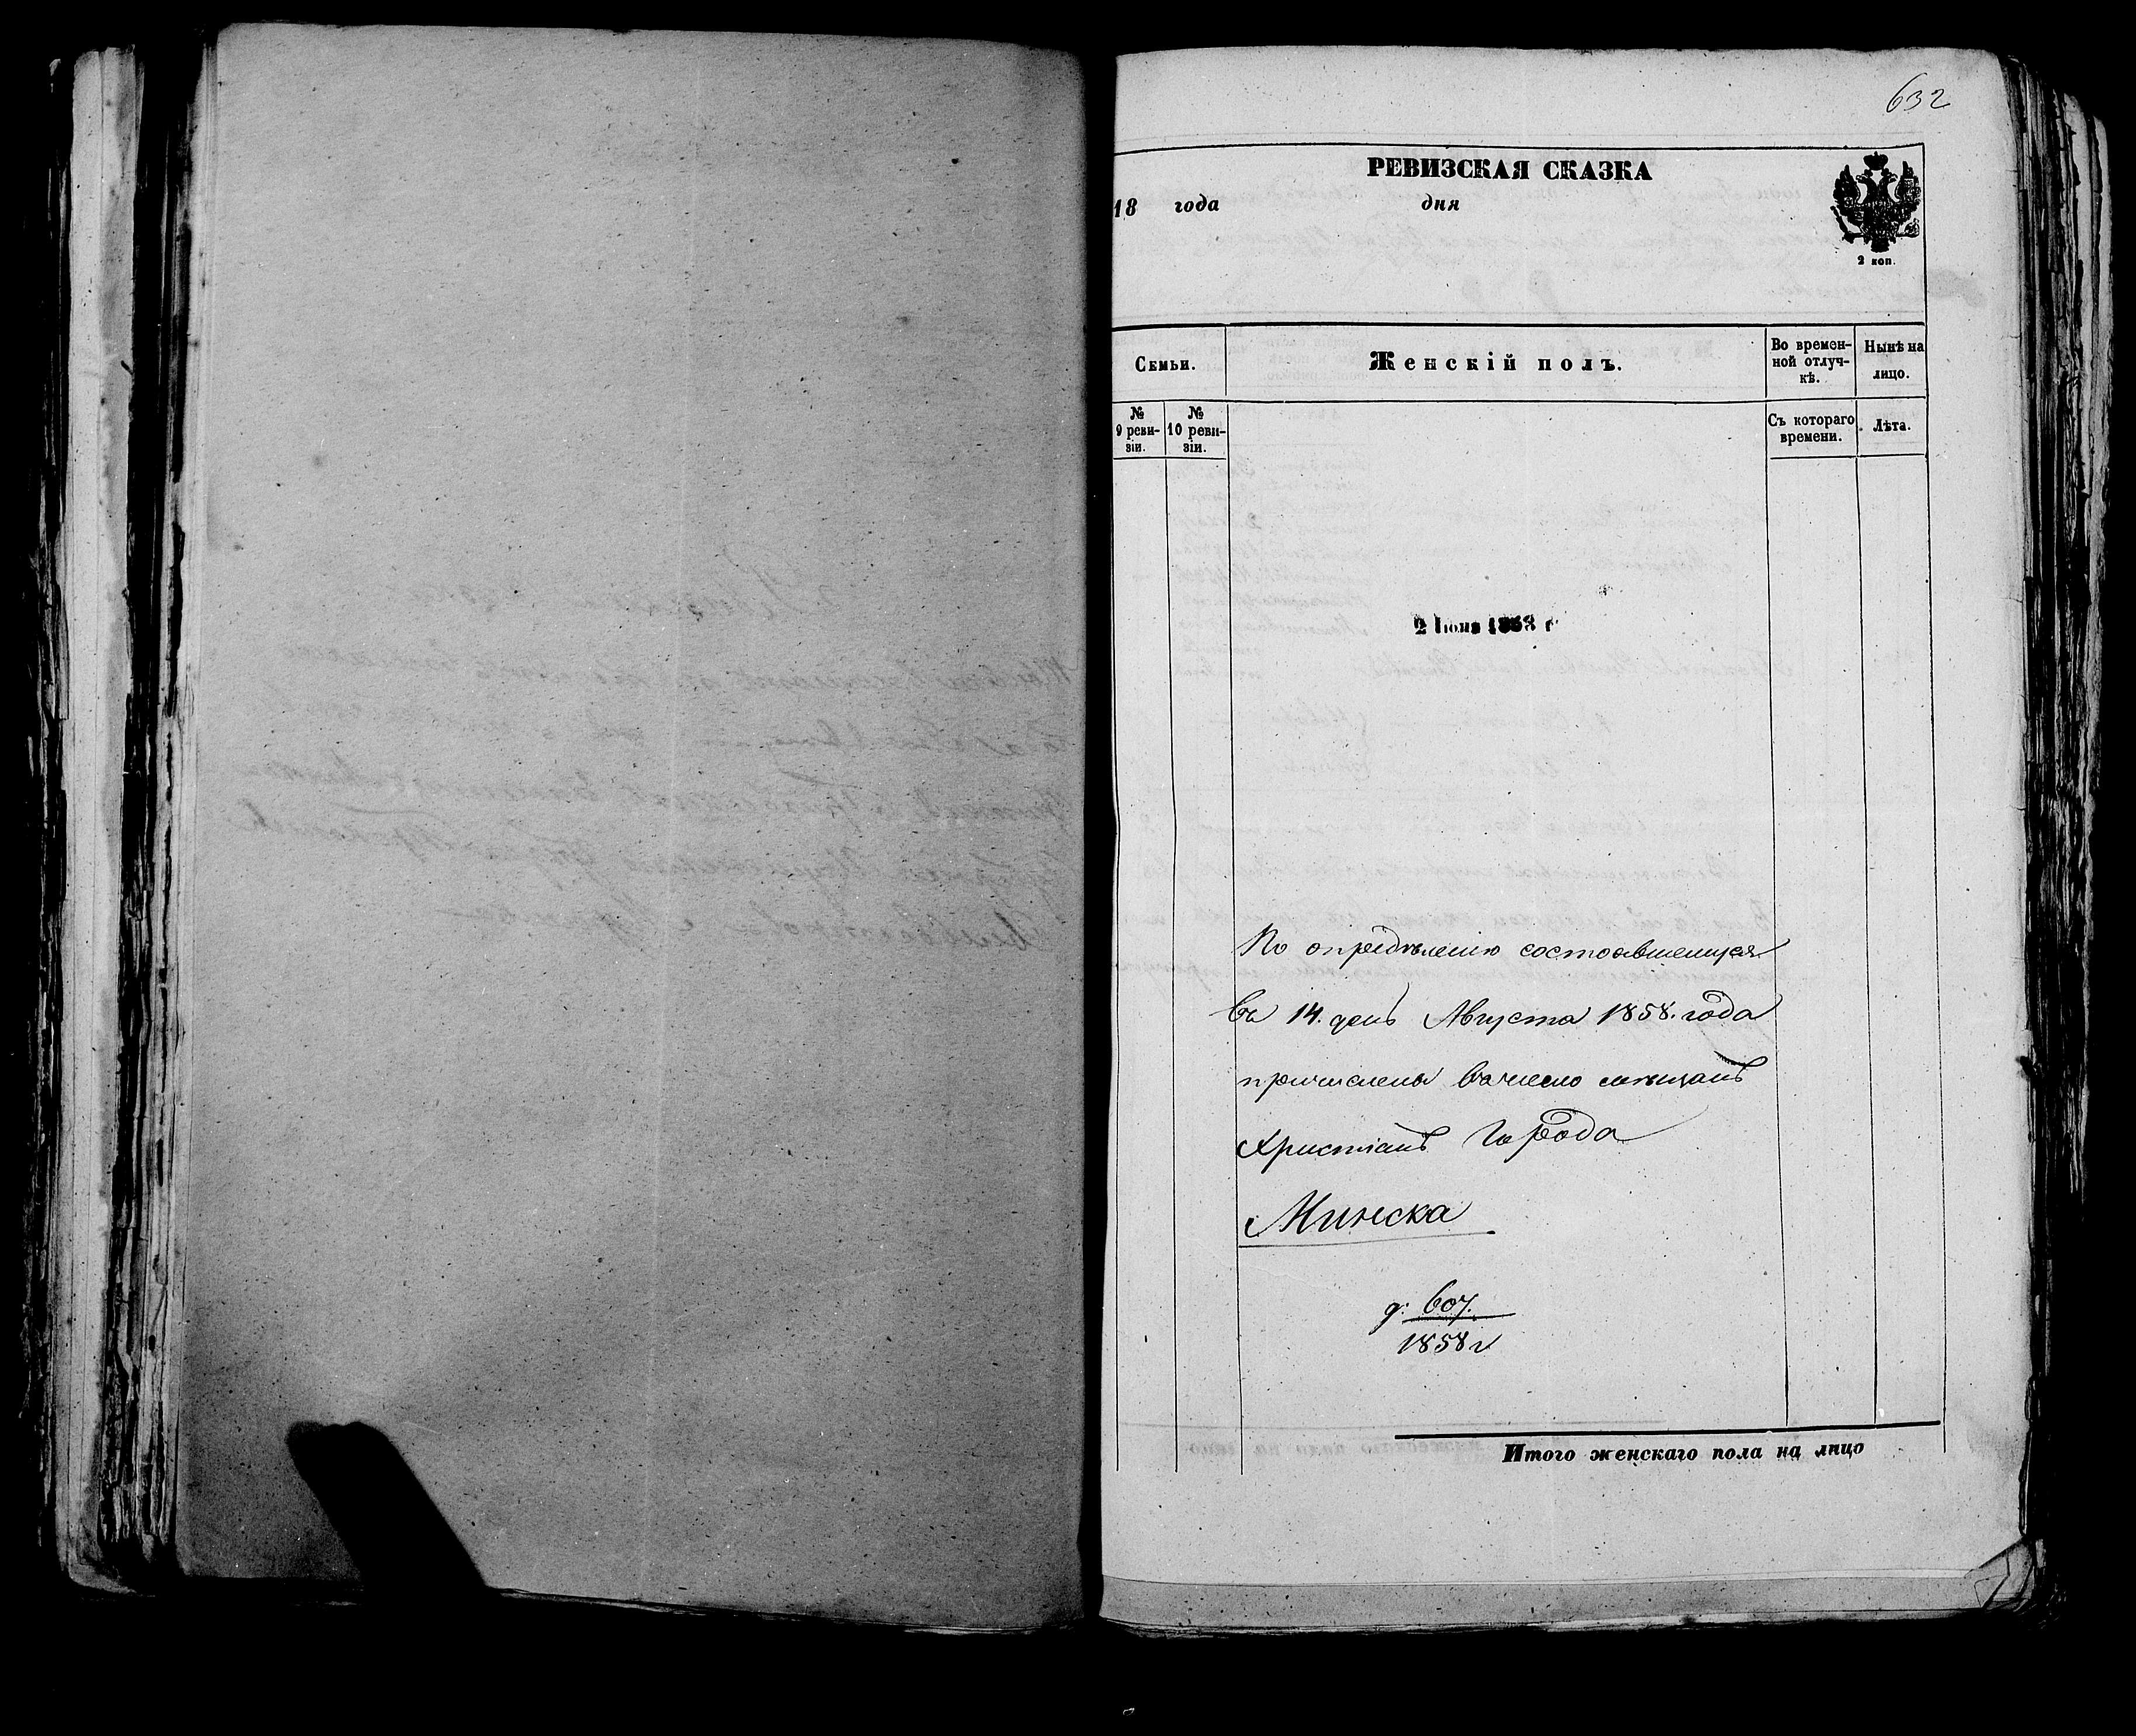 632
РЕВИЗСКАЯ СКАЗКА
18 года дня
2 коп.
Семьи.
Женскій полъ.
Во времен-
ной отлуч-
кѣ.
Нынѣ на
лицо.
№
9 реви-
зіи.
№
10 реви-
зіи.
Съ котораго
времени.
Лѣта.
2 Іюня 1858 г
По опредѣленію состоявшемуся
въ 14. день Августа 1858. года
причислены вочисло мѣщанъ
Христіанъ Города
Минска
д: 607.
1858 г
Итого женскаго пола на лицо